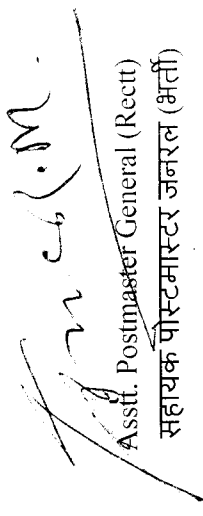 Asstt. Postmaster General (Rectt)
सहायक पोस्टमास्टर जनरल (भर्ती)